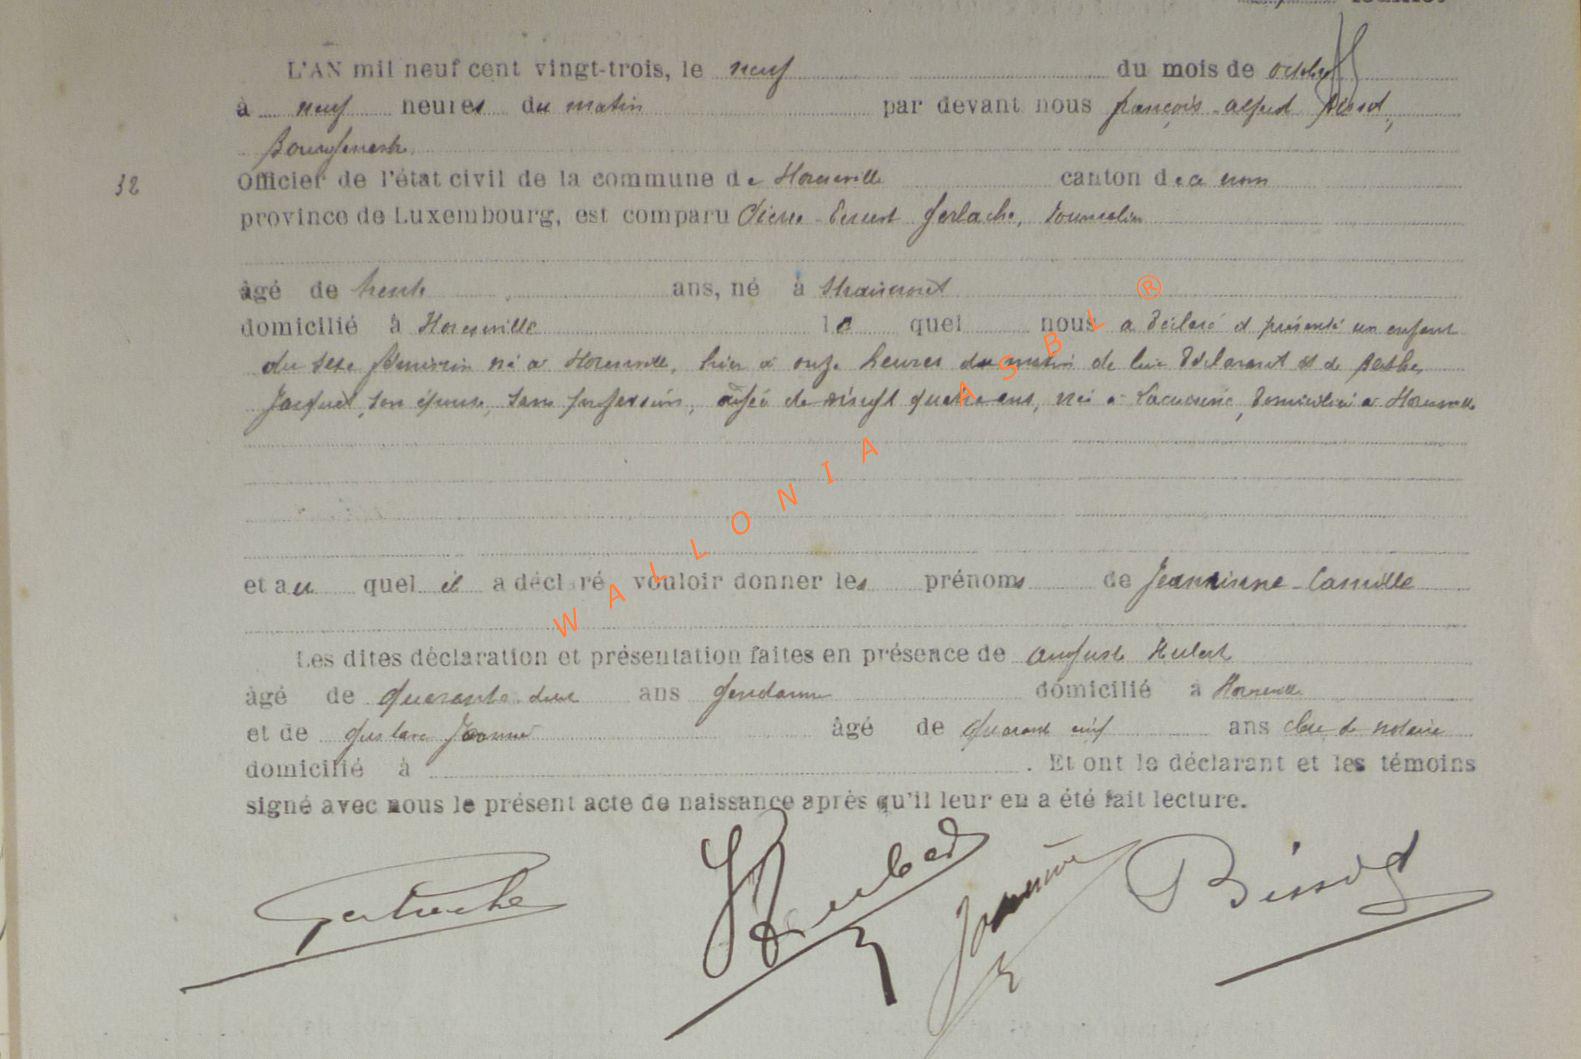 feuillet
L'AN mil neuf cent vingt-trois, le neuf du mois de octobre
à neuf heures du matin par devant nous françois-alfred Bissot,
Bourgmestre
32
Officier de l'état civil de la commune de Honsville canton de
province de Luxembourg, est comparu Pierre Ernest Gerlache,
âgé de trente ans, né à Straimont
domicilié à lequel nous a déclaré et présenté un enfant
du sexe féminin né à hier à onze heures du matin de lui déclarant et de Berthe
Jacquet, son épouse, sans profession, agée de vingt quatre ans, née à Lacuisine, domiciliée à
et au quel il a déclaré vouloir donner les prénoms de Jeannine-Camille
Les dites déclaration et présentation faites en présence de auguste Hubert
âgé de quarante deux ans gendarme domicilié à
et de gustave âgé de quarante neuf ans clerc de notaire
domicilié à . Et ont le déclarant et les témoins
signé avec nous le présent acte de naissance après qu'il leur en a été fait lecture.
Gerlache Hubert Bissot
WALLONIA ASBL ®